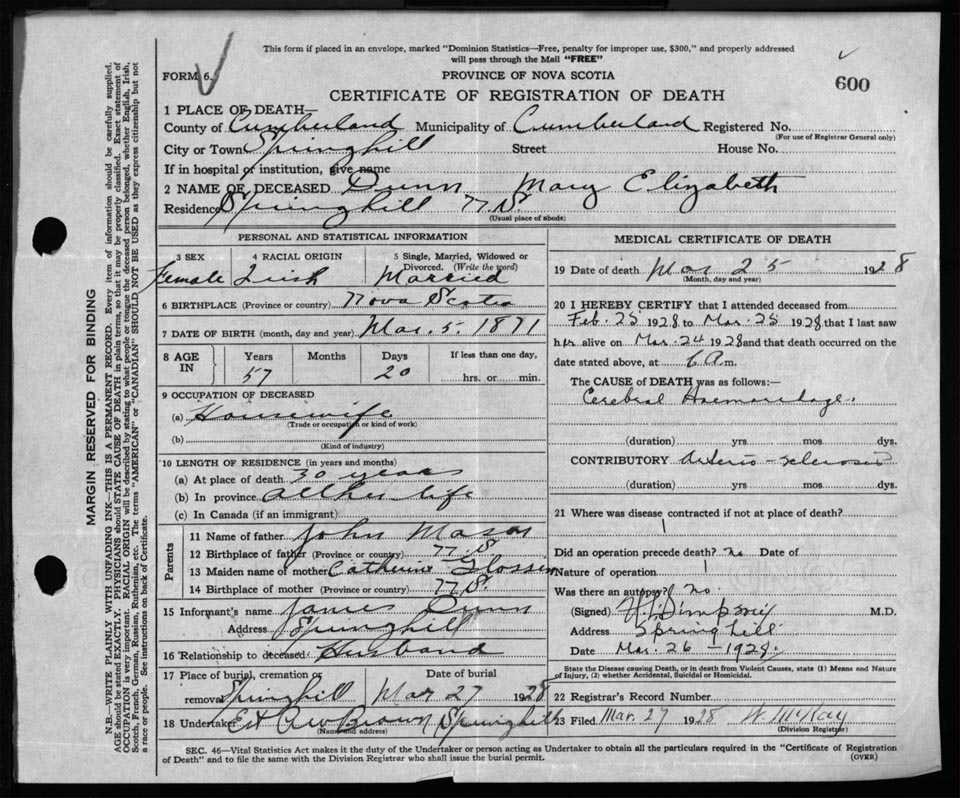 This form if placed in an envelope, marked "Dominion Statistics—Free, penalty for improper use, $300," and properly addressed
will pass through the Mail "FREE"
FORM 6.
PROVINCE OF NOVA SCOTIA
600
CERTIFICATE OF REGISTRATION OF DEATH
1 PLACE OF DEATH—
County of Cumberland Municipality of Cumberland Registered No.
(For use of Registrar General only)
City or Town Springhill Street House No.
If in hospital or institution, give name
2 NAME OF DECEASED Dunn Mary Elizabeth
Residence Springhill N.S.
(Usual place of abode)
PERSONAL AND STATISTICAL INFORMATION
3 SEX 4 RACIAL ORIGIN 5 Single, Married, Widowed or
Divorced. (Write the word)
Female Irish Married
6 BIRTHPLACE (Province or country) Nova Scotia
7 DATE OF BIRTH (month, day and year) Mar. 5. 1871
8 AGE IN Years Months Days If less than one day,
57 20 hrs. or min.
9 OCCUPATION OF DECEASED
(a) Housewife
(Trade or occupation or kind of work)
(b)
(Kind of industry)
10 LENGTH OF RESIDENCE (in years and months)
(a) At place of death 30 years
(b) In province all her life
(c) In Canada (if an immigrant)
Parents
11 Name of father John Mason
12 Birthplace of father (Province or country) N.S
13 Maiden name of mother Catherine
14 Birthplace of mother (Province or country) N.S.
15 Informant's name James Dunn
Address Springhill
16 Relationship to deceased Husband
17 Place of burial, cremation or Date of burial
removal Springhill Mar 27 1928
18 Undertaker Brown Springhill
(Name and address)
MEDICAL CERTIFICATE OF DEATH
19 Date of death Mar 25 1928
(Month, day and year)
20 I HEREBY CERTIFY that I attended deceased from
Feb. 25 1928 to Mar. 25 1928 that I last saw
her alive on Mar. 24 1928 and that death occurred on the
date stated above, at 6 A.m.
The CAUSE of DEATH was as follows:—
Cerebral Haemorrhage.
(duration) yrs mos dys.
CONTRIBUTORY Arterio-sclerosis
(duration) yrs. mos. dys.
21 Where was disease contracted if not at place of death?
Did an operation precede death? no Date of
Nature of operation
Was there an autopsy? no
(Signed) M.D.
Address Springhill
Date Mar. 26 - 1928.
State the Disease causing Death, or in death from Violent Causes, state (1) Means and Nature
of Injury, (2) whether Accidental, Suicidal or Homicidal.
22 Registrar's Record Number
23 Filed Mar. 27 1928 W. McKay
(Division Registrar)
SEC. 46—Vital Statistics Act makes it the duty of the Undertaker or person acting as Undertaker to obtain all the particulars required in the "Certificate of Registration
of Death" and to file the same with the Division Registrar who shall issue the burial permit.
(OVER)
MARGIN RESERVED FOR BINDING
N.B.—WRITE PLAINLY WITH UNFADING INK—THIS IS A PERMANENT RECORD. Every item of information should be carefully supplied.
AGE should be stated EXACTLY. PHYSICIANS should STATE CAUSE OF DEATH in plain terms, so that it may be properly classified. Exact statement of
OCCUPATION is very important. RACIAL ORIGIN will be described by stating to what people or tongue the deceased person belonged, whether English, Irish,
Scotch, French, German, Russian, Ruthenian, etc. The terms "AMERICAN" or "CANADIAN" SHOULD NOT BE USED as they express citizenship but not
a race or people. See instructions on back of Certificate.